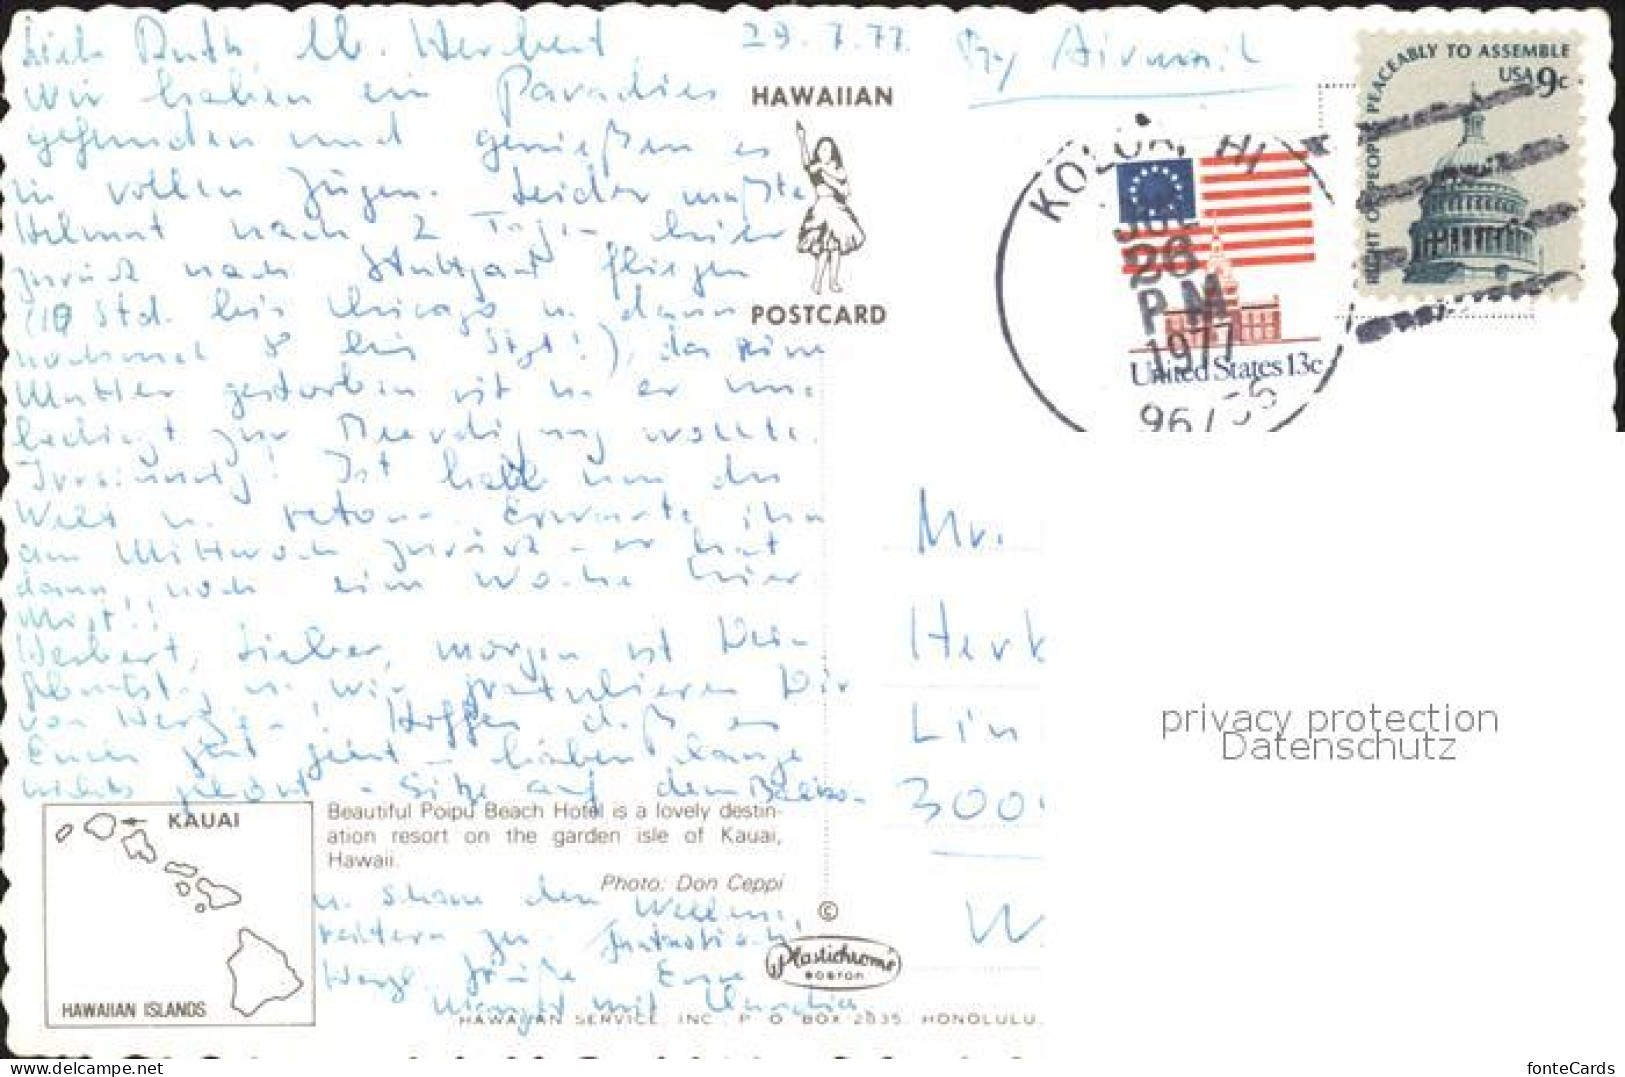 Lieb Ruth, lb. Herbert,
29.7.77.
By Airmail
Wir haben ein Paradies
gefunden und genießen es
in vollen Zügen. Leider mußte
Helmut nach 2 Tagen hier
zurück nach Stuttgart fliegen
(10 Std. bis Chicago u. dann
nochmal 8 bis Stgt!), da seine
Mutter gestorben ist u. er un-
bedingt zur Beerdigung wollte.
Irrsinnig! Ist halb um die
Welt u. retour. Erwarte ihn
am Mittwoch zurück - er hat
dann noch eine Woche hier
Mist!!
Herbert, Lieber, morgen ist Dein
Geburtstag u. wir gratulieren Dir
von Herzen! Hoffen daß es
Euch gut geht - haben lange
nichts gehört - Sitze auf dem Balkon
u. schau den Wellen-
reitern zu. Fantastisch!
Herzl. Grüße Eure
Margot mit
HAWAIIAN
POSTCARD
RIGHT OF PEOPLE PEACEABLY TO ASSEMBLE
USA 9c
KOLOA, HI
JUL
26
PM
1977
United States 13c
Mr.
Herb
Lin
300
W
privacy protection
Datenschutz
KAUAI
HAWAIIAN ISLANDS
Beautiful Poipu Beach Hotel is a lovely destin-
ation resort on the garden isle of Kauai,
Hawaii.
Photo: Don Ceppi
©
Plastichrome
BOSTON
HAWAIIAN SERVICE, INC. P. O. BOX 2835, HONOLULU,
www.delcampe.net
fonteCards